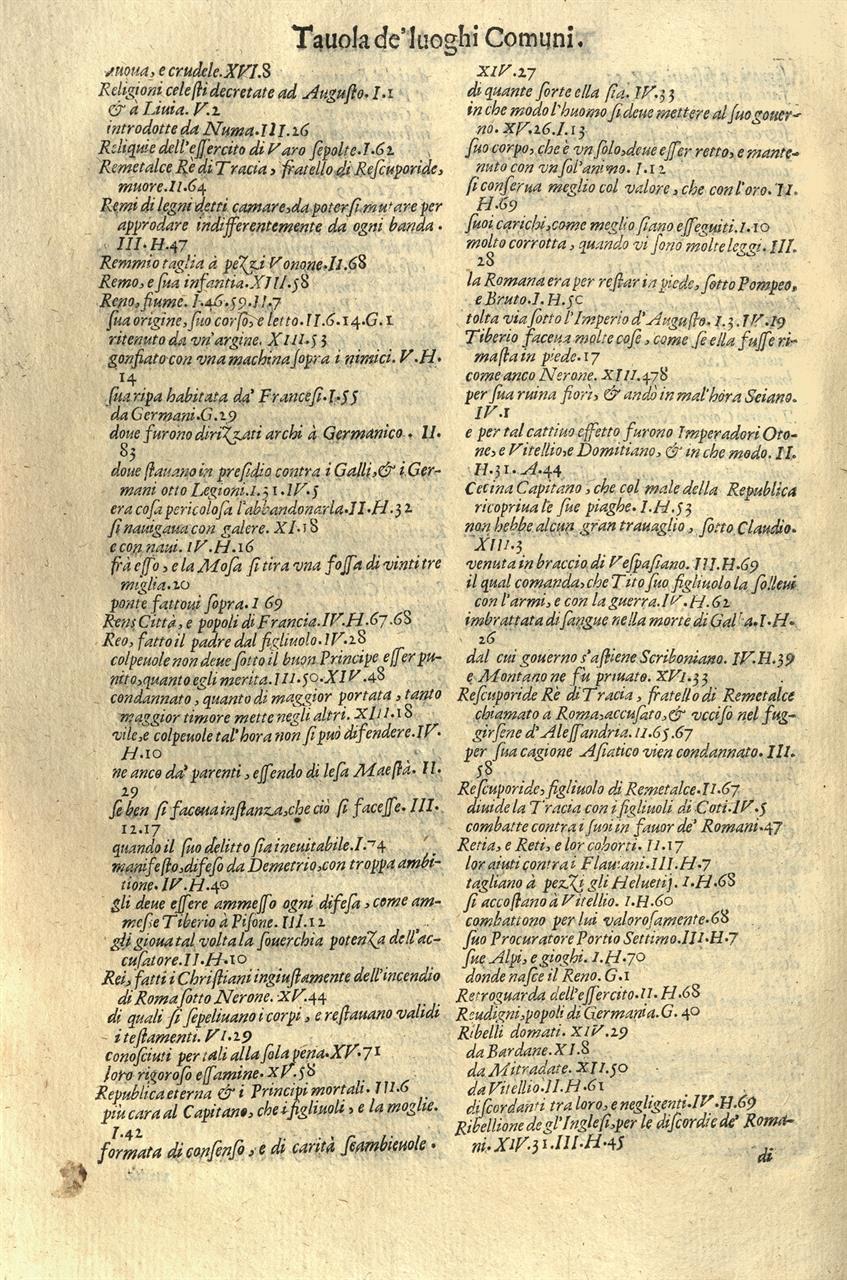 Tauola de' luoghi Comuni.
nuoua, e crudele.XVI.8
Religioni celesti decretate ad Augusto.I.1
& à Liuia.V.2
introdotte da Numa.III.26
Reliquie dell'essercito di Varo sepolte.I.62
Remetalce Rè di Tracia, fratello di Rescuporide,
muore.II.64
Remi di legni detti camare, da potersi mutare per
approdare indifferentemente da ogni banda.
III.H.47
Remmio taglia à pezzi Vonone.II.68
Remo, e sua infantia.XIII.58
Reno, fiume. I.46.59.II.7
sua origine, suo corso, e letto.II.6.14.G.1
ritenuto da vn'argine. XIII.53
gonfiato con vna machina sopra i nimici. V.H.
14
sua ripa habitata da' Francesi.I.55
da Germani.G.29
doue furono dirizzati archi à Germanico. II.
83
doue stauano in presidio contra i Galli, & i Ger-
mani otto Legioni.I.31.IV.5
era cosa pericolosa l'abbandonarla.II.H.32
si nauigaua con galere. XI.18
e con naui. IV.H.16
frà esso, e la Mosa si tira vna fossa di vinti tre
miglia.20
ponte fattoui sopra.I 69
Rens Città, e popoli di Francia.IV.H.67.68
Reo, fatto il padre dal figliuolo.IV.28
colpeuole non deue sotto il buon Principe esser pu-
nito, quanto egli merita.III.50.XIV.48
condannato, quanto di maggior portata, tanto
maggior timore mette negli altri. XIII.18
vile, e colpeuole tal'hora non si può difendere.IV.
H.10
ne anco da' parenti, essendo di lesa Maestà. II.
29
se ben si faceua instanza, che ciò si facesse. III.
12.17
quando il suo delitto sia ineuitabile.I.74
manifesto, difeso da Demetrio, con troppa ambi-
tione. IV.H.40
gli deue essere ammesso ogni difesa, come am-
messe Tiberio à Pisone. III.12
gli gioua tal volta la souerchia potenza dell'ac-
cusatore.II.H.10
Rei, fatti i Christiani ingiustamente dell'incendio
di Roma sotto Nerone. XV.44
di quali si sepeliuano i corpi, e restauano validi
i testamenti. VI.29
conosciuti per tali alla sola pena.XV.71
loro rigoroso essamine. XV.58
Republica eterna & i Principi mortali. III.6
più cara al Capitano, che i figliuoli, e la moglie.
I.42
formata di consenso, e di carità scambieuole.
XIV.27
di quante sorte ella sia. IV.33
in che modo l'huomo si deue mettere al suo gouer-
no. XV.26.I.13
suo corpo, che è vn solo, deue esser retto, e mante-
nuto con vn sol'animo. I.12
si conserua meglio col valore, che con l'oro. II.
H.69
suoi carichi, come meglio siano esseguiti.I.10
molto corrotta, quando vi sono molte leggi. III.
28
la Romana era per restar in piede, sotto Pompeo,
e Bruto.I.H.50
tolta via sotto l'Imperio d'Augusto. I.3.IV.19
Tiberio faceua molte cose, come se ella fusse ri-
masta in piede.17
come anco Nerone. XIII.478
per sua ruina fiorì, & andò in mal'hora Seiano.
IV.1
e per tal cattiuo effetto furono Imperadori Oto-
ne, e Vitellio, e Domitiano, & in che modo. II.
H.31. A.44
Cecina Capitano, che col male della Republica
ricopriua le sue piaghe. I.H.53
non hebbe alcun gran trauaglio, sotto Claudio.
XIII.3
venuta in braccio di Vespasiano. III.H.69
il qual comanda, che Tito suo figliuolo la solleui
con l'armi, e con la guerra.IV.H.62
imbrattata di sangue nella morte di Galba.I.H.
26
dal cui gouerno s'astiene Scriboniano. IV.H.39
e Montano ne fù priuato. XVI.33
Rescuporide Rè di Tracia, fratello di Remetalce
chiamato a Roma, accusato, & vcciso nel fug-
girsene d'Alessandria. II.65.67
per sua cagione Asiatico vien condannato. III.
58
Rescuporide, figliuolo di Remetalce.II.67
diuide la Tracia con i figliuoli di Coti.IV.5
combatte contra i suoi in fauor de' Romani.47
Retia, e Reti, e lor cohorti. II.17
lor aiuti contra i Flauiani.III.H.7
tagliano à pezzi gli Heluetij. I.H.68
si accostano à Vitellio. I.H.60
combattono per lui valorosamente.68
suo Procuratore Portio Settimo.III.H.7
sue Alpi, e gioghi. I.H.70
donde nasce il Reno. G.1
Retroguarda dell'essercito.II.H.68
Reudigni, popoli di Germania.G.40
Ribelli domati. XIV.29
da Bardane.XI.8
da Mitradate. XII.50
da Vitellio.II.H.61
discordanti tra loro, e negligenti.IV.H.69
Ribellione degl'Inglesi, per le discordie de' Roma-
ni. XIV.31.III.H.45
di